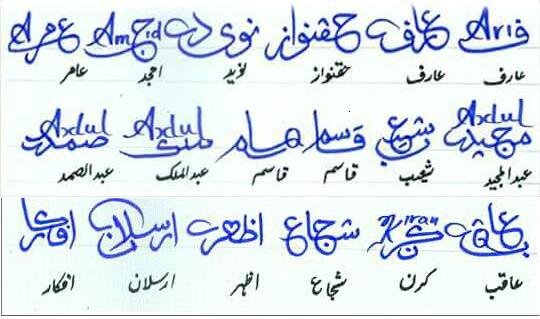 Arif عارف حقنواز نوید Amjd عامر A
عارف عارف حقنواز نوید امجد عامر
Abdul مجید شعیب قاسم قاسم Abdul ملک Abdul صمد
عبدالمجید شعیب قاسم قاسم عبدالملک عبدالصمد
عاقب Kiran کرن شجاع اظہر ارسلان افکار
عاقب کرن شجاع اظہر ارسلان افکار